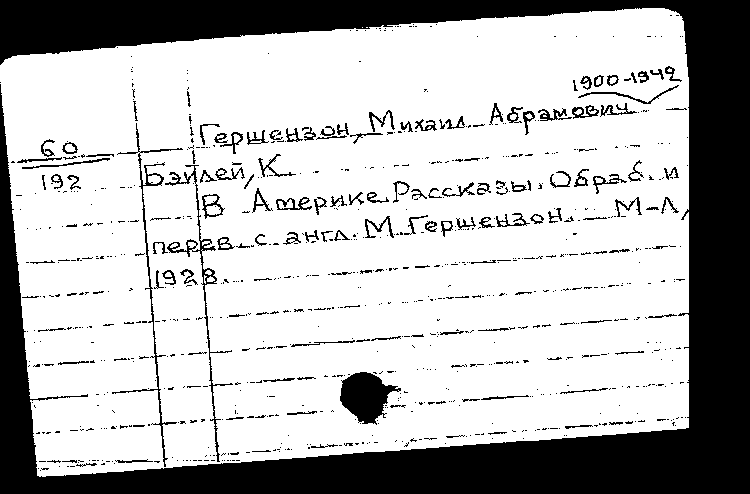 1900-1942
Гершензон, Михаил Абрамович
60
192
Бэйлей, К.
В Америке. Рассказы. Обраб. и
перев. с англ. М. Гершензон. М-Л,
1928.